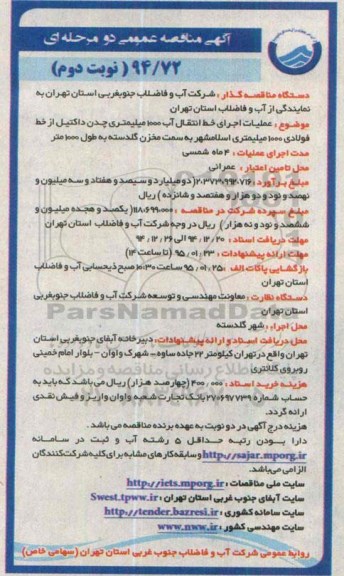 آگهی مناقصه عمومی دو مرحله ای
۹۴/۷۲ ( نوبت دوم)
دستگاه مناقصه گذار : شرکت آب و فاضلاب جنوبغربی استان تهران به
نمایندگی از آب و فاضلاب استان تهران
موضوع : عملیات اجرای خط انتقال آب ۱۰۰۰ میلیمتری چدن داکتیل از خط
فولادی ۱۰۰۰ میلیمتری اسلامشهر به سمت مخزن گلدسته به طول ۱۰۰۰ متر
مدت اجرای عملیات : ۴ ماه شمسی
محل تامین اعتبار : عمرانی
مبلغ برآورد : ۲۰۳۷۳،۹۹۲،۷۱۶ (دو میلیارد و سیصد و هفتاد و سه میلیون و
نهصد و نود و دو هزار و هفتصد و شانزده ) ریال
مبلغ سپرده شرکت در مناقصه : ۱۱۸،۶۹۹،۰۰۰ ( یکصد و هجده میلیون و
ششصد و نود و نه هزار ) ریال در وجه شرکت آب و فاضلاب استان تهران
مهلت دریافت اسناد : ۲۰ ، ۱۲ ، ۹۴ الی ۲۶ ، ۱۲ ، ۹۴
مهلت ارائه پیشنهادات : ۲۳ ، ۰۱ ، ۹۵ (تا ساعت ۱۴)
بازگشایی پاکات الف : ۲۵ ، ۰۱ ، ۹۵ ساعت ۱۰:۳۰ صبح ذیحسابی آب و فاضلاب
استان تهران
دستگاه نظارت : معاونت مهندسی و توسعه شرکت آب و فاضلاب جنوبغربی
استان تهران
محل اجراء : شهر گلدسته
محل دریافت اسناد و ارائه پیشنهادات : دبیرخانه آبفای جنوبغربی استان
تهران واقع در تهران کیلومتر ۲۲ جاده ساوه – شهرک واوان – بلوار امام خمینی
روبروی کلانتری
هزینه خرید اسناد : ۴۰۰،۰۰۰ (چهارصد هزار) ریال می باشد که باید به
حساب شماره ۲۰۷۰۶۹۷۷۳۹ بانک تجارت شعبه واوان واریز و فیش نقدی
ارائه گردد.
هزینه درج آگهی در دو نوبت به عهده برنده مناقصه می باشد .
دارا بودن رتبه حداقل ۵ رشته آب و ثبت در سامانه
http://sajar.mporg.ir و سابقه کارهای مشابه برای کلیه شرکت کنندگان
الزامی می باشد.
سایت ملی مناقصات : http://iets.mporg.ir
سایت آبفای جنوب غربی استان تهران : Swest.tpww.ir
سایت سامانه کشوری : http://tender.bazresi.ir
سایت مهندسی کشور : www.nww.ir
روابط عمومی شرکت آب و فاضلاب جنوب غربی استان تهران (سهامی خاص)
ParsNamadData